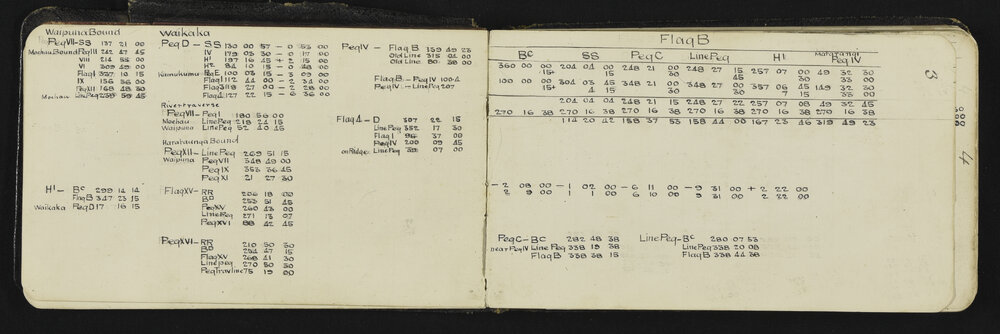 Waipuna Bound
PegVII-SS 137 21 00
Moehau Bound PegIII 242 47 45
VIII 214 55 00
VI 309 49 00
Flag I 337 10 15
IX 156 36 00
PegXII 168 48 30
Moehau LinePeg 238 59 45
H¹ - Bᶜ 299 14 14
Flag B 347 23 15
Waikaka Peg D 17 16 15
Waikaka
Peg D - SS 130 00 57 - 0 53 00
IV 179 03 30 - 0 17 00
H¹ 197 16 45 + 2 15 00
H² 84 10 15 - 0 48 00
Peg E 100 03 15 - 3 09 00
Flag 112 44 00 - 2 34 00
Flag 3 119 27 00 - 2 28 00
Flag 4 127 22 15 - 6 36 00
Rivertraverse
PegVII - Peg I 180 56 00
Moehau LinePeg 218 24 15
Waipuna LinePeg 52 40 45
Harataunga Bound
PegXII - LinePeg 269 51 15
Waipuna PegVII 348 49 00
PegIX 353 36 45
PegXI 21 27 30
FlagXV - RR 206 18 00
B^D 253 51 45
PegXV 260 43 00
LinePeg 271 13 07
PegXVI 88 42 45
PegXVI - RR 210 50 30
B^D 254 47 15
FlagXV 268 41 30
Linepeg 270 50 30
PegTravline 75 19 00
PegIV - Flag B 159 49 23
Old Line 315 04 00
Old Line 80 38 00
FlagB - PegIV 100.4
PegIV - LinePeg 207
Flag 4 - D 307 22 15
LinePeg 352 17 30
Flag I 96 37 00
PegIV 200 09 45
on Ridge LinePeg 32 07 00
Flag B
Bᶜ SS Peg C Line Peg H¹ Matarangi Peg IV
360 00 00 204 04 00 248 21 00 248 27 15 257 07 00 49 32 30
15+ 15 30 45 30 33 00
100 00 00 304 03 45 348 21 00 348 27 00 357 06 45 149 32 30
15+ 4 15 30 30 7 15 33 00
204 04 04 248 21 15 248 27 22 257 07 08 49 32 45
270 16 38 270 16 38 270 16 38 270 16 38 270 16 38 270 16 38
114 20 42 158 37 53 158 44 00 167 23 46 319 49 23
- 2 08 00 - 1 02 00 - 6 11 00 - 9 31 00 + 2 22 00
2 9 00 1 1 00 6 10 00 9 31 00 2 22 00
PegC - BC 282 48 38
near PegIV Line Peg 338 19 38
Flag B 338 38 15
Line Peg - Bᶜ 280 07 53
Line Peg 338 20 08
Flag B 338 44 38
3
4